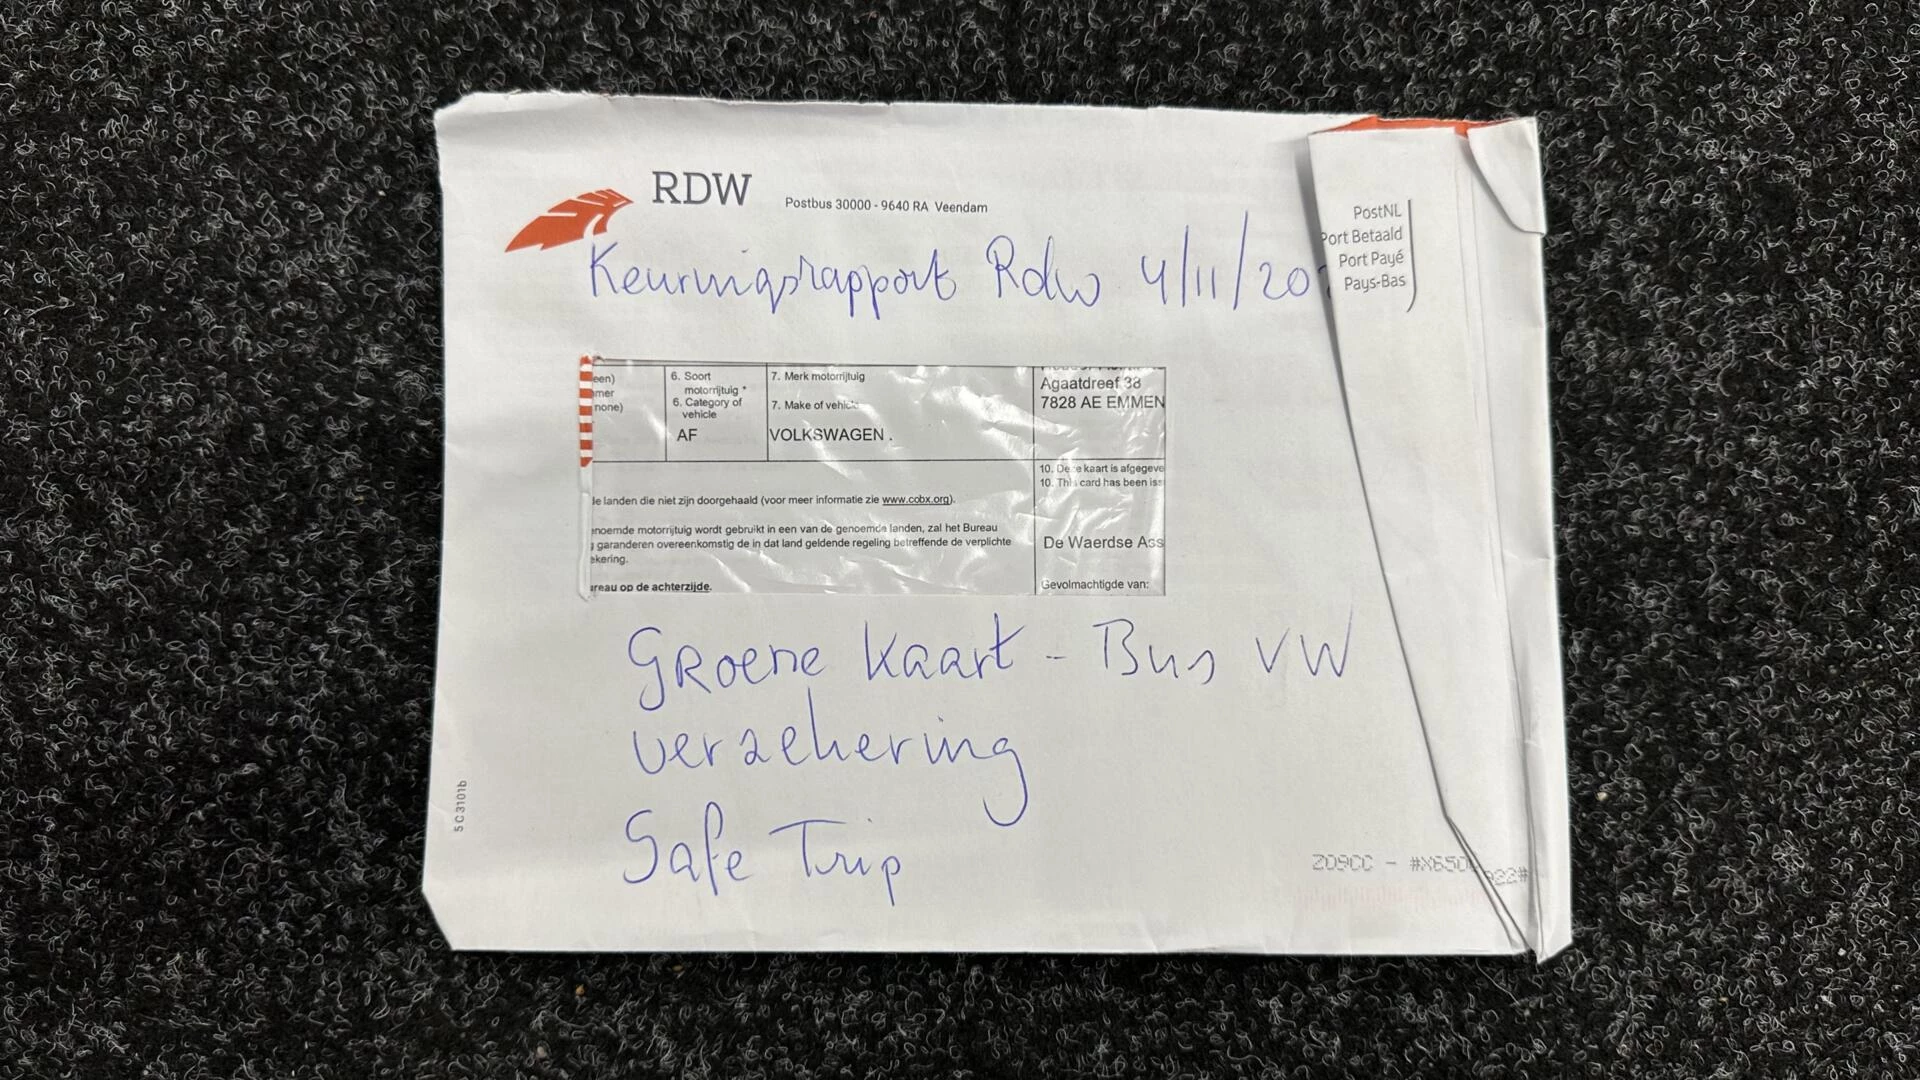 RDW
Postbus 30000 - 9640 RA Veendam
PostNL
Port Betaald
Port Payé
Pays-Bas
Keuringsrapport Rdw 4/11/20
een)
mer
none)
6. Soort
motorrijtuig *
6. Category of
vehicle
AF
7. Merk motorrijtuig
7. Make of vehicle
VOLKSWAGEN .
Agaatdreef 38
7828 AE EMMEN
10. Deze kaart is afgegeve
10. This card has been iss
le landen die niet zijn doorgehaald (voor meer informatie zie www.cobx.org).
enoemde motorrijtuig wordt gebruikt in een van de genoemde landen, zal het Bureau
g garanderen overeenkomstig de in dat land geldende regeling betreffende de verplichte
ekering.
ureau op de achterzijde.
De Waerdse Ass
Gevolmachtigde van:
Groene Kaart - Bus VW
verzekering
Safe Trip
5C3101b